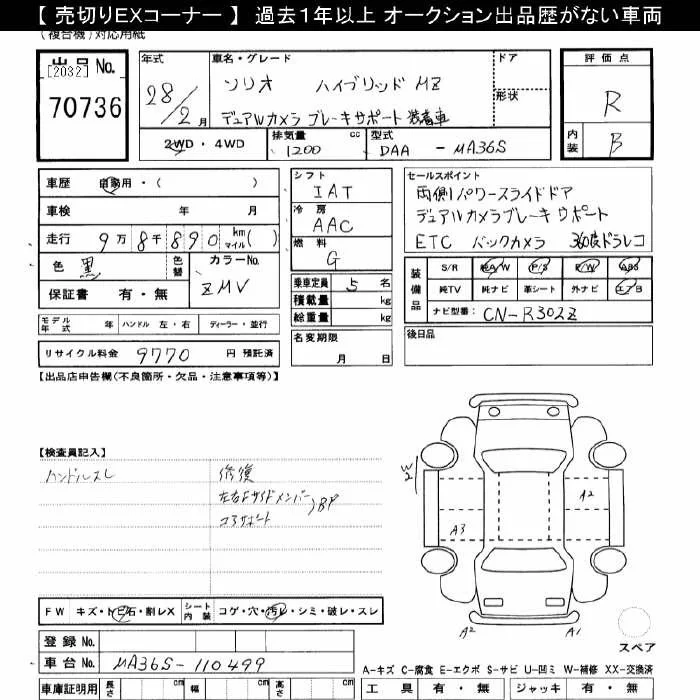 【 売切りEXコーナー 】 過去1年以上 オークション出品歴がない車両
(複合機)対応用紙
出品No. [2032] 70736
年式 28/2月
車名・グレード ソリオ ハイブリッド MZ
デュアルカメラ ブレーキサポート 装着車
ドア
形状
評価点 R
内装 B
2WD・4WD 排気量 1200 cc 型式 DAA - MA36S
車歴 自家用・( )
車検 年 月
走行 9万 8千 890 km マイル ( )
色 黒 色替 カラーNo. ZMV
保証書 有・無
モデル年式 年 ハンドル 左・右 ディーラー・並行
リサイクル料金 9770 円 預託済
シフト IAT
冷房 AAC
燃料 G
乗車定員 5 名
積載量 kg
総重量 kg
名変期限
月 日
セールスポイント
両側パワースライドドア
デュアルカメラブレーキサポート
ETC バックカメラ 360度ドラレコ
装備品 S/R 純A/W P/S P/W ABS
純TV 純ナビ 革シート 外ナビ エアB
ナビ型番: CN-R302Z
後日品
【出品店申告欄(不良箇所・欠品・注意事項等)】
【検査員記入】
ハンドルスレ
修復
左右Fサイドメンバー
コアサポート
BP
W2
A2
A3
A2 A1
スペア
FW キズ・トビ石・割レX シート内装 コゲ・穴・汚レ・シミ・破レ・スレ
登録No.
車台No. MA36S-110499
車庫証明用 長さ cm 幅 cm 高さ cm
A-キズ C-腐食 E-エクボ S-サビ U-凹ミ W-補修 XX-交換済
工具 有・無 ジャッキ 有・無